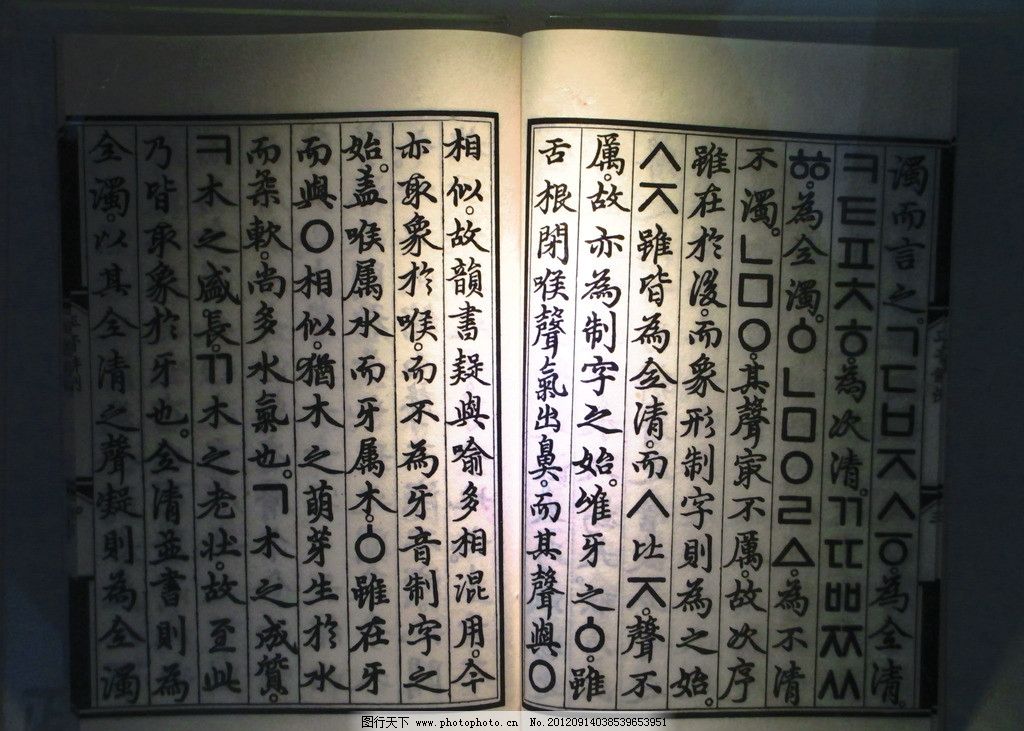 濁而言之。ㄱㄷㅂㅈㅅㆆ。為全清。
ㅋㅌㅍㅊㅎ。為次清。ㄲㄸㅃㅉㅆ
ㆅ。為全濁。ㆁㄴㅁㅇㄹㅿ。為不清
不濁。ㄴㅁㅇ。其聲㝡不厲。故次序
雖在於後。而象形制字則為之始。
ㅅㅈ雖皆為全清。而ㅅ比ㅈ。聲不
厲。故亦為制字之始。唯牙之ㆁ。雖
舌根閉喉聲氣出鼻。而其聲與ㅇ
相似。故韻書疑與喻多相混用。今
亦取象於喉。而不為牙音制字之
始。盖喉属水而牙属木。ㆁ雖在牙
而與ㅇ相似。猶木之萌芽生於水
而柔軟。尚多水氣也。ㄱ木之成質。
ㅋ木之盛長。ㄲ木之老壯。故至此
乃皆取象於牙也。全清並書則為
全濁。以其全清之聲凝則為全濁
图行天下 www.photophoto.cn No.20120914038539653951